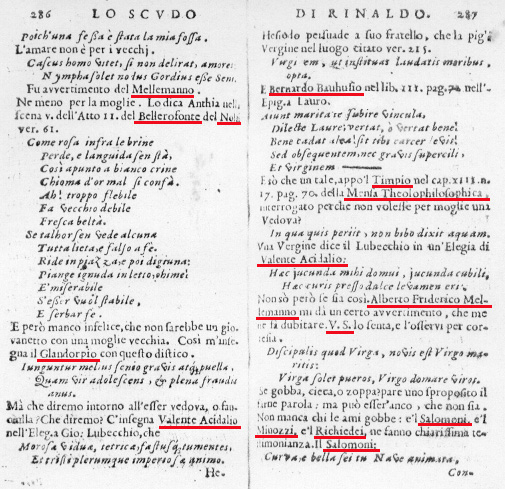 286 LO SCVDO
Poich'una fessa è stata la mia fossa.
L'amare non è per i vecchj.
Cascus homo quiet, si non delirat, amore:
Nymphas olet nolus Gordius esse Sen.
Fu avvertimento del Mellemanno.
Ne meno per la moglie. Lo dica Anthia nella
scena v. dell'Atto II. del Bellerofonte del Nob.
ver. 61.
Come rosa infra le brine
Perde, e languida sen stà,
Così apunto a bianco crine
Chioma d'or mal si confà.
Ah! troppo flebile
Fa vecchio debile
Fresca beltà.
Se talhor sen vede alcuna
Tutta lieta è falso a fè.
Ride in piazza, e poi digiuna:
Piange ignuda in letto, ohime!
E' miserabile
S'esser vuol stabile,
E serbar fe.
E però manco infelice, che non farebbe un gio-
vanetto con una moglie vecchia. Così m'inse-
gna il Glandorpio con questo distico.
Iunguntur melius senio gravis atq; puella,
Quam vir adolescens, & plena fraudis
anus.
Mà che diremo intorno all'esser vedova, o fan-
ciulla? Che diremo? C'insegna Valente Acidalio
nell'Eleg. a Gio; Lubecchio, che
Morosa vidua, tetrica, fastusq; tumentes,
Et tristi plerumque imperiosa animo.
He-
DI RINALDO. 287
Hesiodo persuade a suo fratello, che la pigli
Vergine nel luogo citato ver. 215.
Virgi em, ut instituat laudatis moribus,
opta.
E Bernardo Bauhusio nel lib. III. pag. 72 nell'-
Epig. a Lauro.
Aiunt marita re subire vincula,
Dilecte Laure: vertat, ò vertat bene!
Bene cadat alea! sit tibi carcer levis!
Sed obsequentem, nec gravis supercili,
Et Virginem
E ciò che un tale, appo'l Timpio nel cap. XIII. n.
17. pag. 70. della Mensa Theolophilosophica,
interrogato perche non volesse per moglie una
Vedova?
In qua quis periit, non bibo dixit aquam.
Una Vergine dice il Lubecchio in un'Elegia di
Valente Acidalio:
Hac jucunda mihi domui, jucunda cubili,
Hac curis presso dulce levamen eri.
Non sò però se sia così. Alberto Friderico Mel-
lemanno mi dà un certo avvertimento, che me
ne fa dubitare. V. S. lo senta, e l'osservi per cor-
tesia.
Discipulis quod Virga, novis est Virgo mari-
tis:
Virga solet pueros, Virgo domare viros.
Se gobba, cieca, o zoppa? pare uno sproposito il
farne parola: ma può esser'anco, che non sia.
Non manca chi le ami gobbe: e'l Salomoni, e'l
Minozzi, e'l Richiedei, ne fanno chiarissima tes-
timonianza. Il Salomoni:
Curva, e bella sei tu Nave animata,
Con-